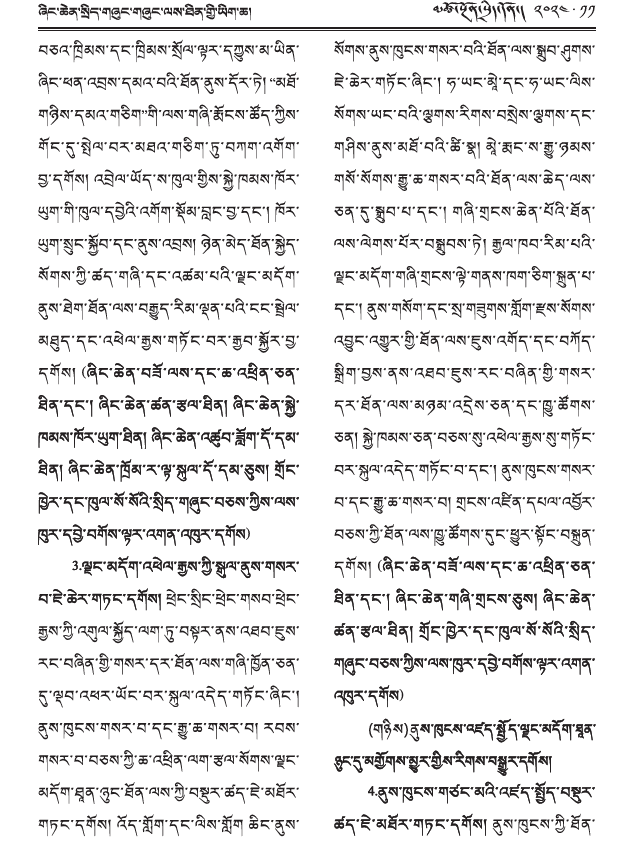 ཞིང་ཆེན་སྲིད་གཞུང་གཞུང་ལས་ཐིན་གྱི་ཡིག་ཆ།
༢༠༢༤·༡༡
བཅའ་ཁྲིམས་དང་ཁྲིམས་སྲོལ་ལྟར་དཀྱུས་མ་ཡིན་
ཞིང་ཕན་འབྲས་དམའ་བའི་ཐོན་ནུས་དོར་ཏེ། “མཐོ་
གཉིས་དམའ་གཅིག”གི་ལས་གཞི་རྨོངས་ཚོད་ཀྱིས་
གོང་དུ་སྤེལ་བར་མཐའ་གཅིག་ཏུ་བཀག་འགོག་
བྱ་དགོས། འབྲེལ་ཡོད་ས་ཁུལ་གྱིས་སྐྱེ་ཁམས་ཁོར་
ཡུག་གི་ཁུལ་དབྱེའི་འགོག་སྡོམ་བླང་བྱ་དང་། ཁོར་
ཡུག་སྲུང་སྐྱོབ་དང་ནུས་འབྲས། ཉེན་མེད་ཐོན་སྐྱེད་
སོགས་ཀྱི་ཚད་གཞི་དང་འཚམ་པའི་ལྗང་མདོག་
ནུས་ཐེག་ཐོན་ལས་བརྒྱུད་རིམ་ལྡན་པའི་ངང་སྦྲེལ་
མཐུད་དང་འཕེལ་རྒྱས་གཏོང་བར་རྒྱབ་སྐྱོར་བྱ་
དགོས། (ཞིང་ཆེན་བཟོ་ལས་དང་ཆ་འཕྲིན་ཅན་
ཐིན་དང་། ཞིང་ཆེན་ཚན་རྩལ་ཐིན། ཞིང་ཆེན་སྐྱེ་
ཁམས་ཁོར་ཡུག་ཐིན། ཞིང་ཆེན་འཚུབ་ཟློག་དོ་དམ་
ཐིན། ཞིང་ཆེན་ཁྲོམ་ར་ལྟ་སྐུལ་དོ་དམ་ཅུས། གྲོང་
ཁྱེར་དང་ཁུལ་སོ་སོའི་སྲིད་གཞུང་བཅས་ཀྱིས་ལས་
ཁུར་དབྱེ་བགོས་ལྟར་འགན་འཁུར་དགོས)
3.ལྗང་མདོག་འཕེལ་རྒྱས་ཀྱི་སྐུལ་ནུས་གསར་
བ་ཇེ་ཆེར་གཏང་དགོས། ཕྲེང་སྲིང་ཕྲེང་གསབ་ཕྲེང་
རྒྱས་ཀྱི་འགུལ་སྐྱོད་ལག་ཏུ་བསྟར་ནས་འཐབ་ཇུས་
རང་བཞིན་གྱི་གསར་དར་ཐོན་ལས་གཞི་ཁྱོན་ཅན་
དུ་ལྡབ་འཕར་ཡོང་བར་སྐུལ་འདེད་གཏོང་ཞིང་།
ནུས་ཁུངས་གསར་བ་དང་རྒྱུ་ཆ་གསར་བ། རབས་
གསར་བ་བཅས་ཀྱི་ཆ་འཕྲིན་ལག་རྩལ་སོགས་ལྗང་
མདོག་ཐུན་ཉུང་ཐོན་ལས་ཀྱི་བསྡུར་ཚད་ཇེ་མཐོར་
གཏང་དགོས། འོད་གློག་དང་ལིས་གློག ཆིང་ནུས་
སོགས་ནུས་ཁུངས་གསར་བའི་ཐོན་ལས་སྒྲུབ་ཤུགས་
ཇེ་ཆེར་གཏོང་ཞིང་། ཏ་ཡང་མཱེ་དང་ཏ་ཡང་ལིས་
སོགས་ཡང་བའི་ལྕགས་རིགས་བསྲེས་ལྕགས་དང་
གཤིས་ནུས་མཐོ་བའི་ཚི་སྣ། མཱེ་རྨང་ས་རྒྱུ་ཉམས་
གསོ་སོགས་རྒྱུ་ཆ་གསར་བའི་ཐོན་ལས་ཆེད་ལས་
ཅན་དུ་སྒྲུབ་པ་དང་། གཞི་གྲངས་ཆེན་པོའི་ཐོན་
ལས་ལེགས་པོར་བསྒྲུབས་ཏེ། རྒྱལ་ཁབ་རིམ་པའི་
ལྗང་མདོག་གཞི་གྲངས་ལྟེ་གནས་ཁག་ཅིག་སྐྲུན་པ་
དང་། ནུས་གསོག་དང་སྲ་གཟུགས་གློག་རྫས་སོགས་
འབྱུང་འགྱུར་གྱི་ཐོན་ལས་ཇུས་འགོད་དང་བཀོད་
སྒྲིག་བྱས་ནས་འཐབ་ཇུས་རང་བཞིན་གྱི་གསར་
དར་ཐོན་ལས་མཉམ་འདྲེས་ཅན་དང་ཁྱུ་ཚོགས་
ཅན། སྐྱེ་ཁམས་ཅན་བཅས་སུ་འཕེལ་རྒྱས་སུ་གཏོང་
བར་སྐུལ་འདེད་གཏོང་བ་དང་། ནུས་ཁུངས་གསར་
བ་དང་རྒྱུ་ཆ་གསར་བ། གྲངས་འཛིན་དཔལ་འབྱོར་
བཅས་ཀྱི་ཐོན་ལས་ཁྱུ་ཚོགས་དུང་ཕྱུར་སྟོང་བསྐྲུན་
དགོས། (ཞིང་ཆེན་བཟོ་ལས་དང་ཆ་འཕྲིན་ཅན་
ཐིན་དང་། ཞིང་ཆེན་གཞི་གྲངས་ཅུས། ཞིང་ཆེན་
ཚན་རྩལ་ཐིན། གྲོང་ཁྱེར་དང་ཁུལ་སོ་སོའི་སྲིད་
གཞུང་བཅས་ཀྱིས་ལས་ཁུར་དབྱེ་བགོས་ལྟར་འགན་
འཁུར་དགོས)
(གཉིས)ནུས་ཁུངས་འཛད་སྤྱོད་ལྗང་མདོག་ཐུན་
ཉུང་དུ་མགྱོགས་མྱུར་གྱིས་རིགས་བསྒྱུར་དགོས།
4.ནུས་ཁུངས་གཙང་མའི་འཛད་སྤྱོད་བསྡུར་
ཚད་ཇེ་མཐོར་གཏང་དགོས། ནུས་ཁུངས་ཀྱི་ཐོན་